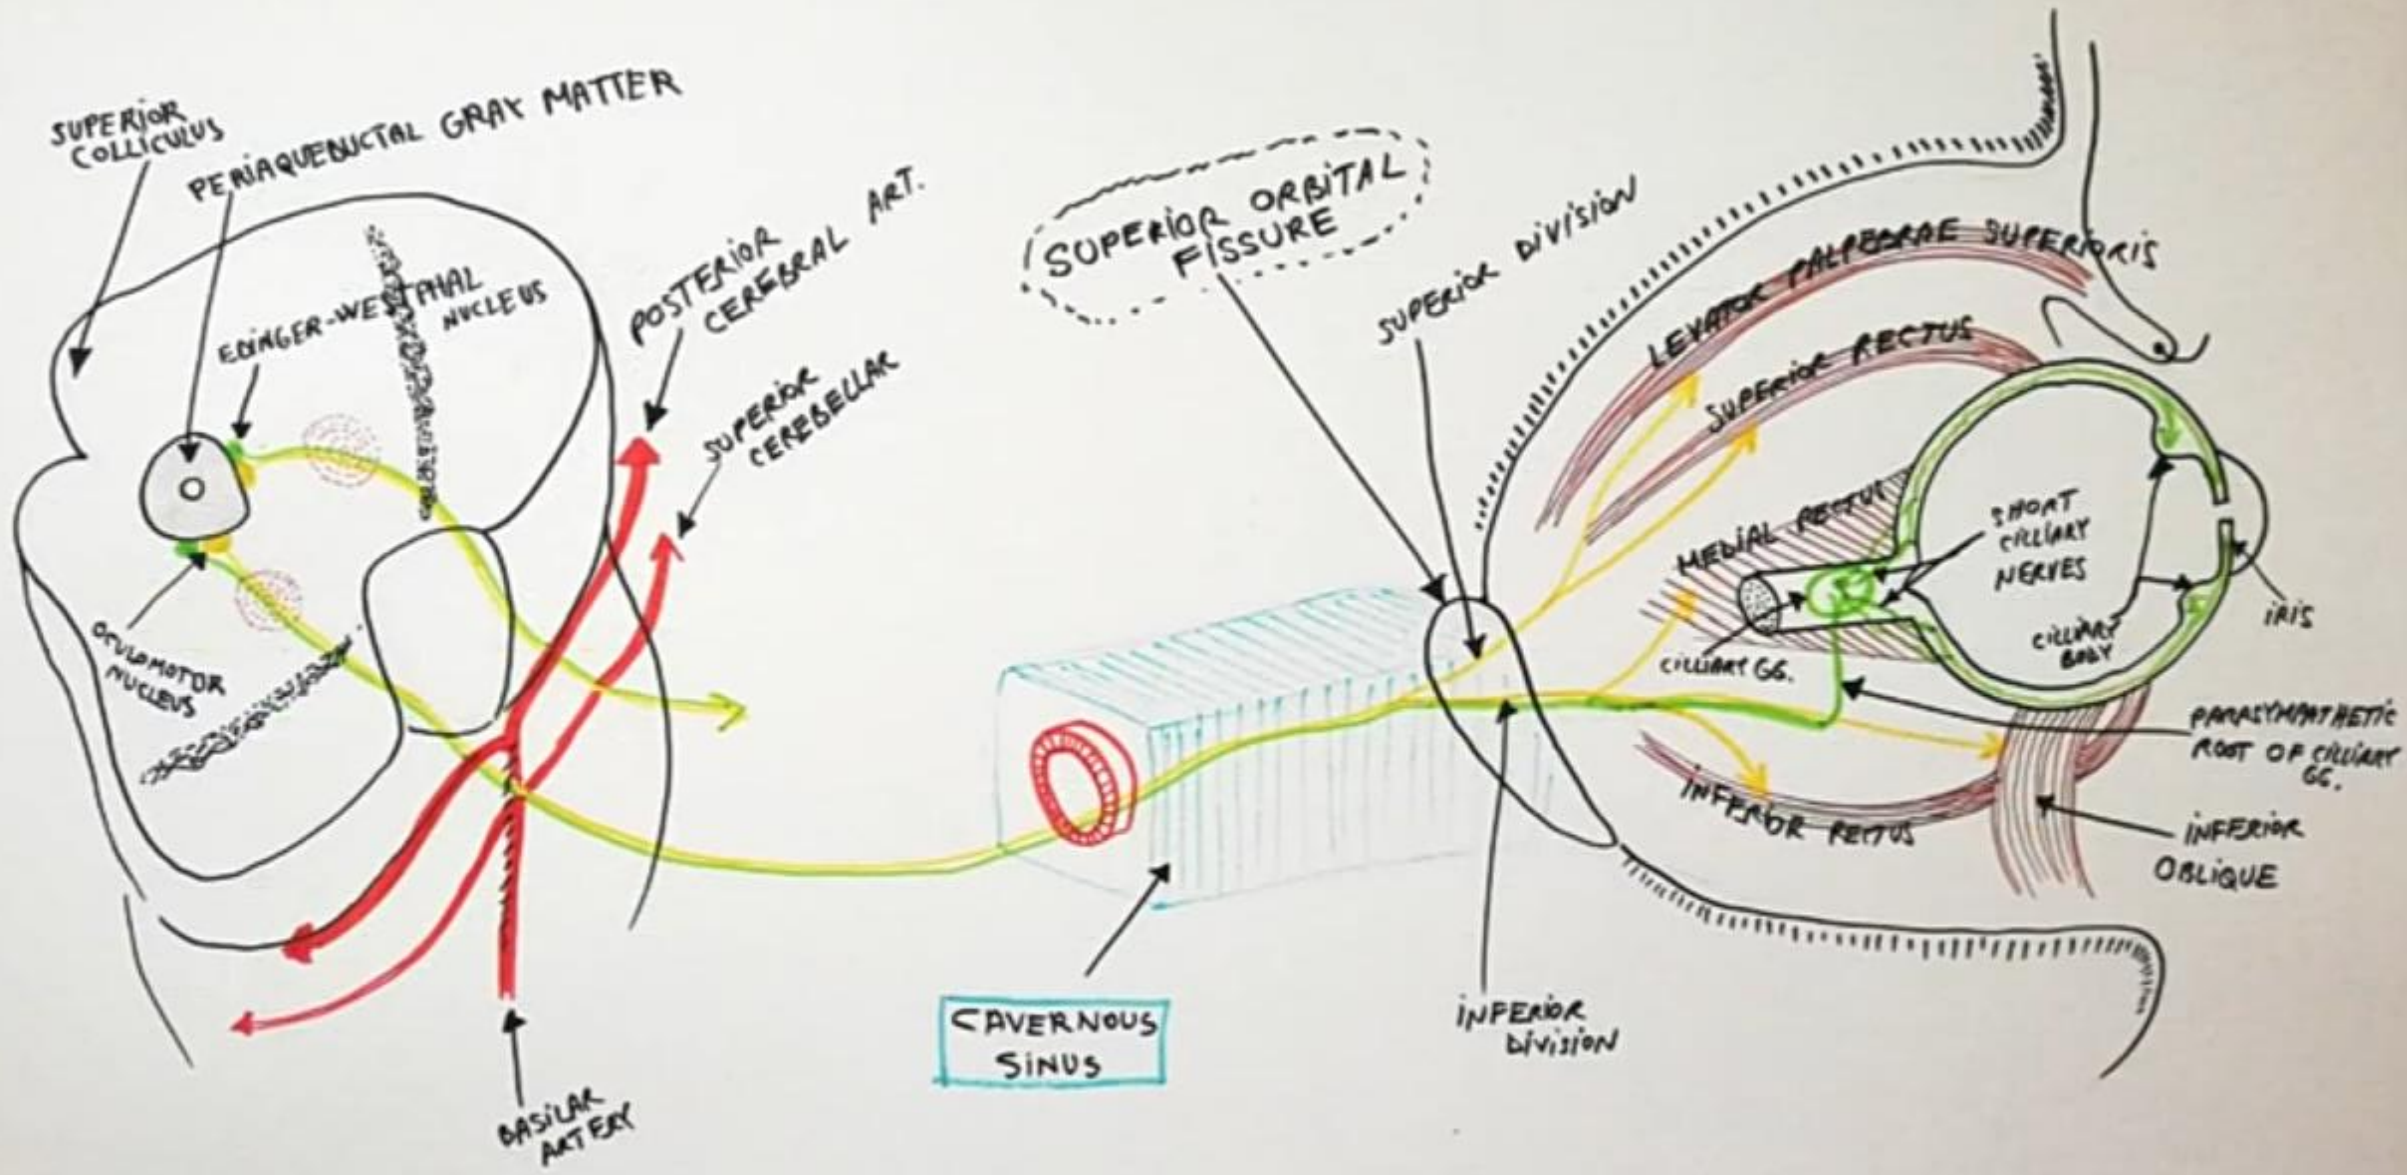 SUPERIOR
COLLICULUS
PERIAQUEDUCTAL GRAY MATTER
EDINGER-WESTPHAL
NUCLEUS
OCULOMOTOR
NUCLEUS
POSTERIOR
CEREBRAL ART.
SUPERIOR
CEREBELLAR
BASILAR
ARTERY
SUPERIOR ORBITAL
FISSURE
SUPERIOR DIVISION
CAVERNOUS
SINUS
INFERIOR
DIVISION
LEVATOR PALPEBRAE SUPERIORIS
SUPERIOR RECTUS
MEDIAL RECTUS
SHORT
CILLIARY
NERVES
CILLIARY GG.
CILLIARY
BODY
IRIS
PARASYMPATHETIC
ROOT OF CILLIARY
GG.
INFERIOR RECTUS
INFERIOR
OBLIQUE